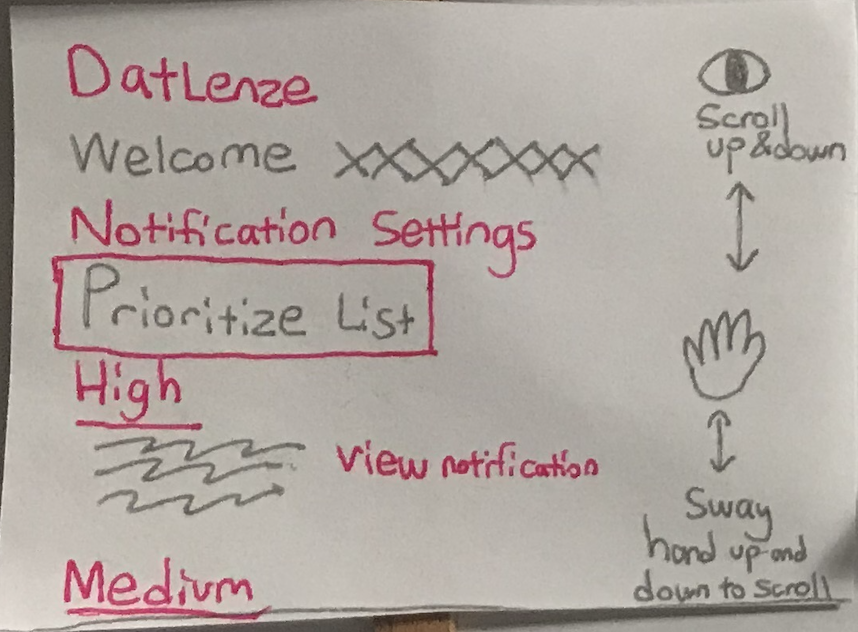 DatLenze
Welcome XXXXXXX
Notification Settings
Prioritize List
High
view notification
Medium
Scroll
up & down
Sway
hand up and
down to scroll